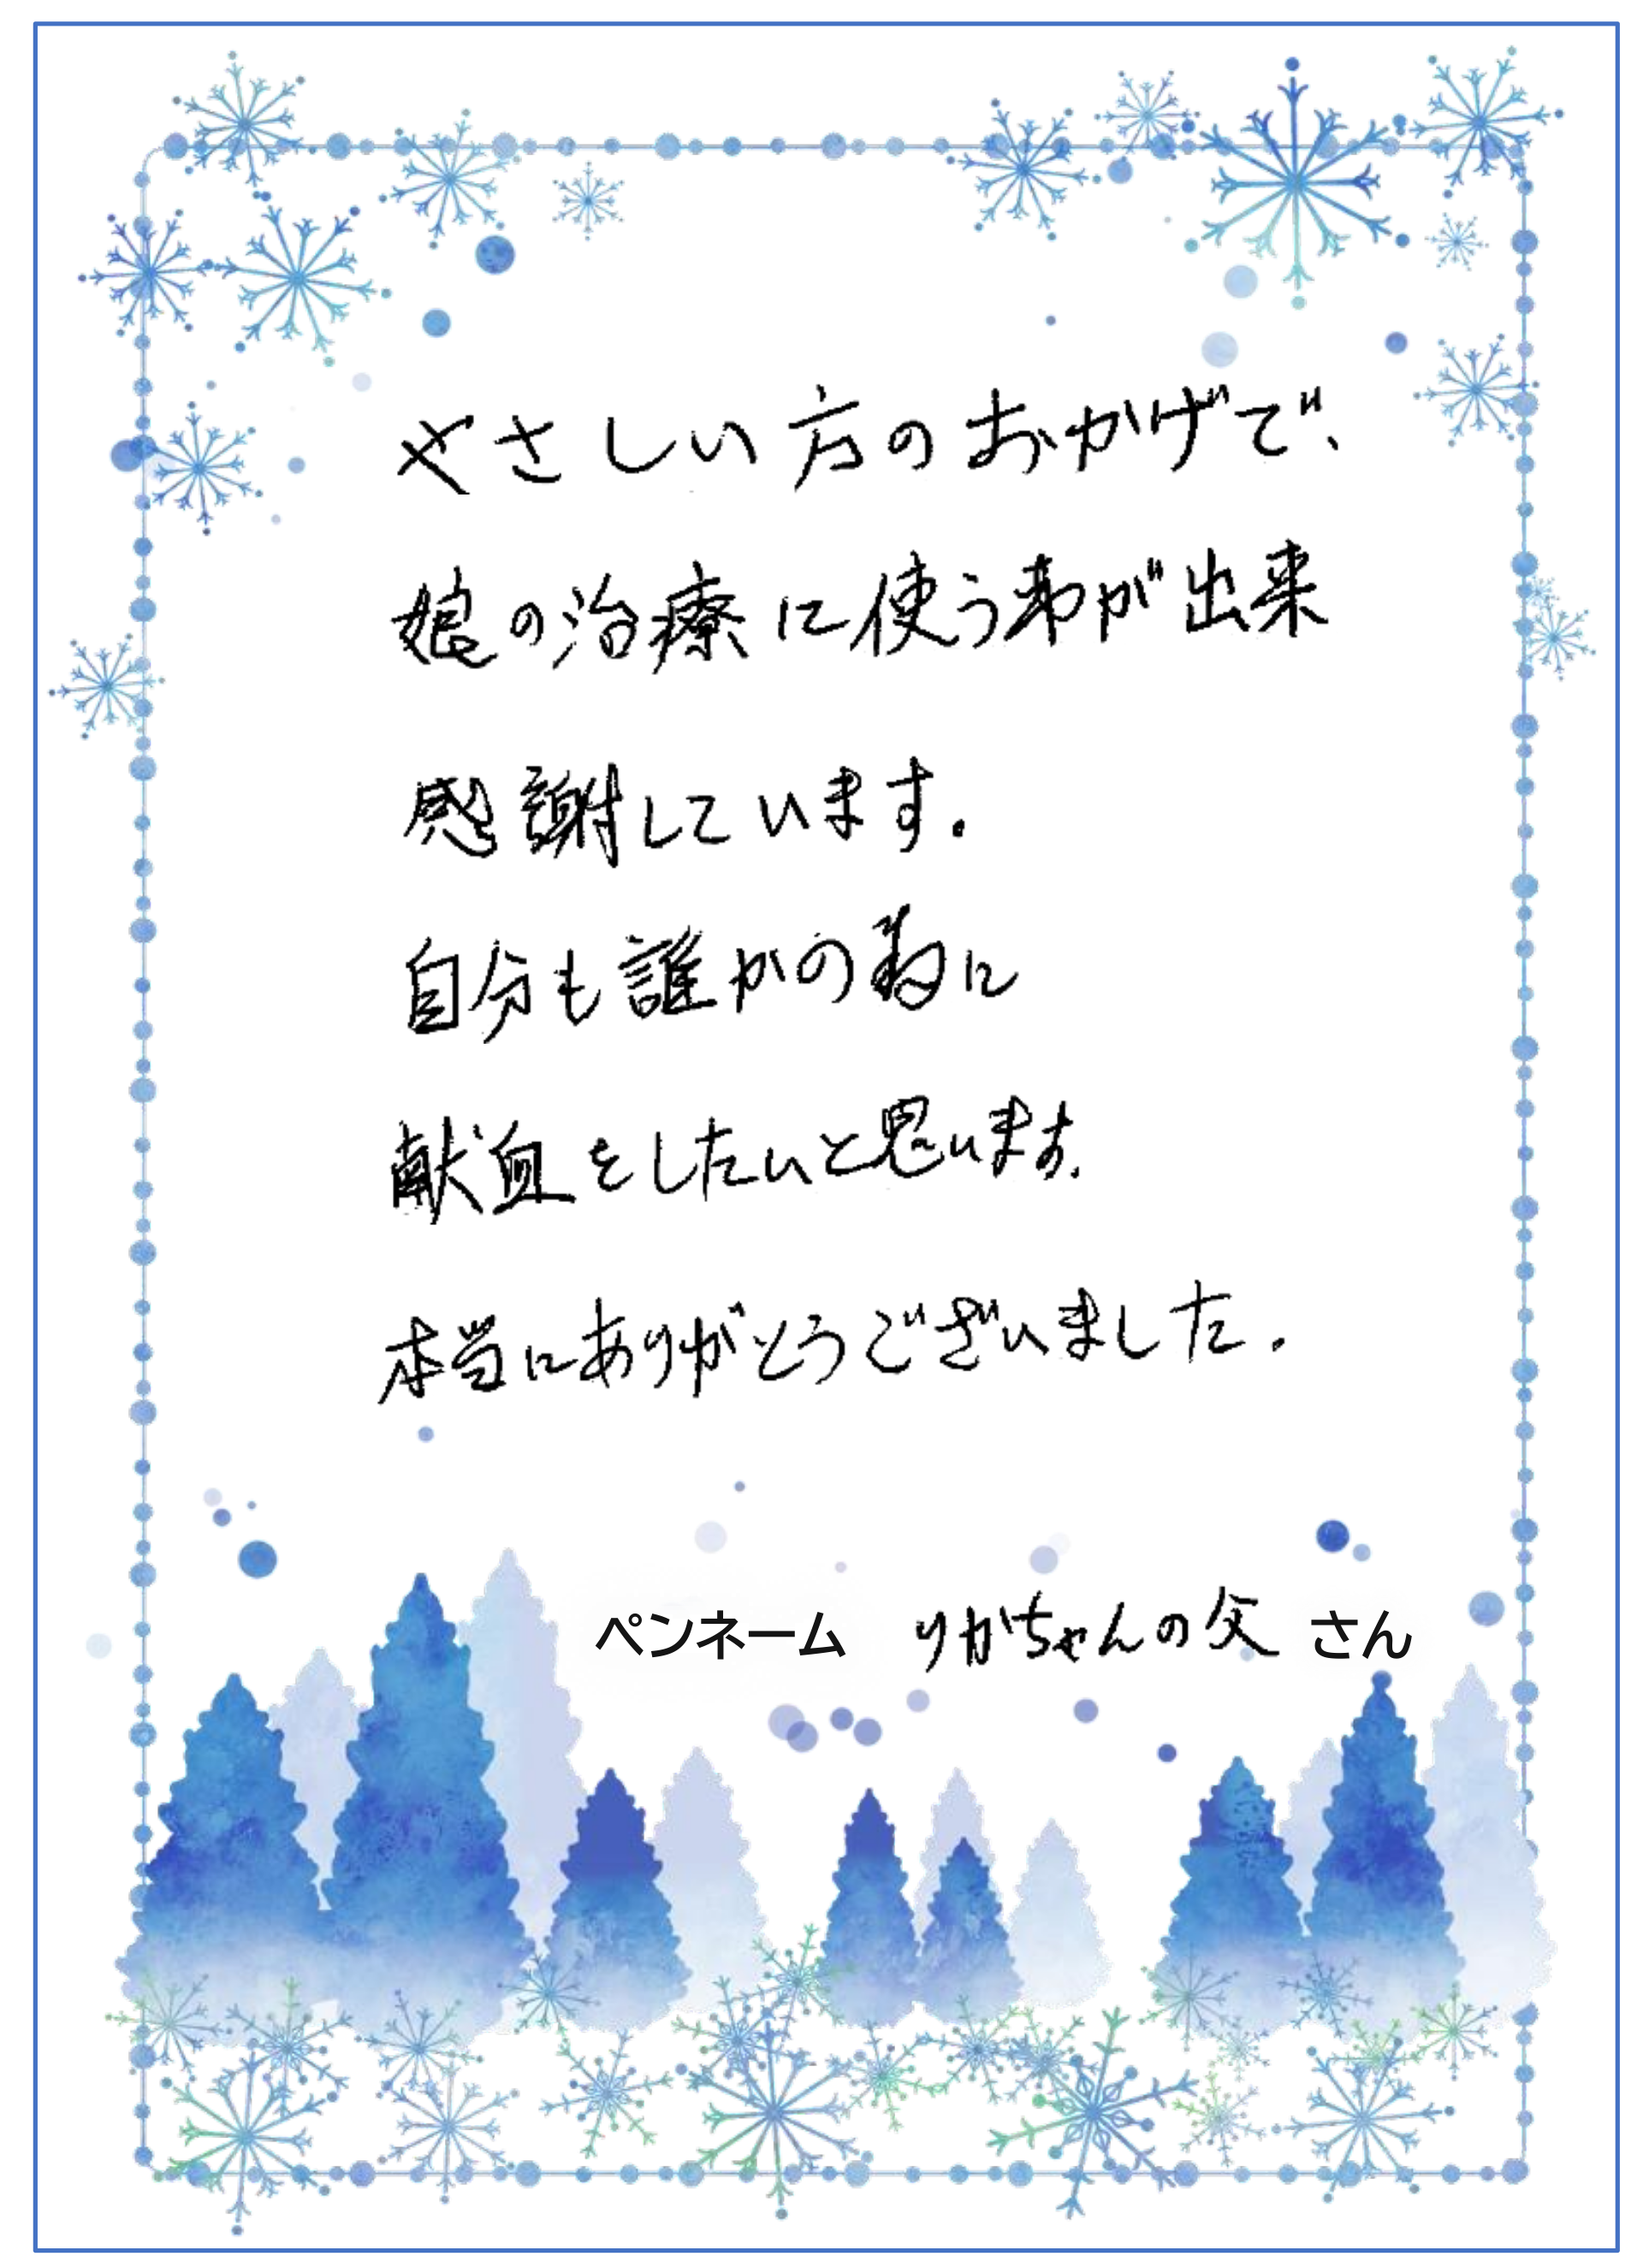 やさしい方のおかげで、
娘の治療に使う事が出来
感謝しています。
自分も誰かの為に
献血をしたいと思います。
本当にありがとうございました。
ペンネーム りかちゃんの父 さん